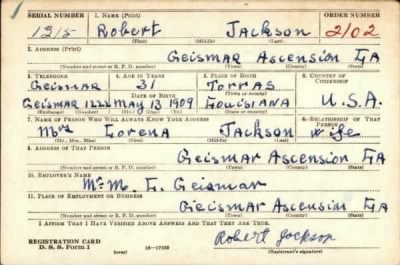 SERIAL NUMBER 1. NAME (Print) ORDER NUMBER
1215 Robert Jackson 2102
(First) (Middle) (Last)
2. ADDRESS (Print)
Geismar Ascension LA
(Number and street or R. F. D. number) (Town) (County) (State)
3. TELEPHONE 4. AGE IN YEARS 5. PLACE OF BIRTH 6. COUNTRY OF CITIZENSHIP
Geismar 31 Torras
DATE OF BIRTH (Town or county)
Geismar 1222 May 13 1909 Louisiana U.S.A.
(Exchange) (Number) (Mo.) (Day) (Yr.) (State or country)
7. NAME OF PERSON WHO WILL ALWAYS KNOW YOUR ADDRESS 8. RELATIONSHIP OF THAT PERSON
Mrs Lorena Jackson wife
(Mr., Mrs., Miss) (First) (Middle) (Last)
9. ADDRESS OF THAT PERSON
Geismar Ascension LA
(Number and street or R. F. D. number) (Town) (County) (State)
10. EMPLOYER'S NAME
Mr M. L. Geismar
11. PLACE OF EMPLOYMENT OR BUSINESS
Geismar Ascension LA
(Number and street or R. F. D. number) (Town) (County) (State)
I AFFIRM THAT I HAVE VERIFIED ABOVE ANSWERS AND THAT THEY ARE TRUE.
Robert Jackson
REGISTRATION CARD
D. S. S. Form 1 (over) 16—17105 (Registrant's signature)